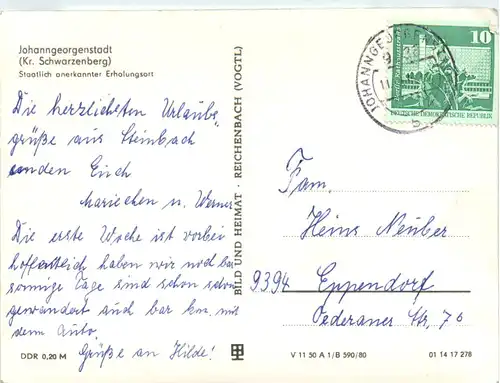 Johanngeorgenstadt
(Kr. Schwarzenberg)
Staatlich anerkannter Erholungsort
Die herzlichsten Urlaubs-
grüße aus Steinbach
senden Euch
Mariechen u. Werner
Die erste Woche ist vorbei
hoffentlich haben wir noch
sonnige Tage sind schon
gewandert auch km. mit
dem Auto.
Grüße an Hilde!
DDR 0,20 M
BILD UND HEIMAT · REICHENBACH (VOGTL)
10
DEUTSCHE DEMOKRATISCHE REPUBLIK
Fam.
Heins Neuber
9394 Eppendorf
Oederaner Str. 70
V 11 50 A 1/B 590/80
01 14 17 278